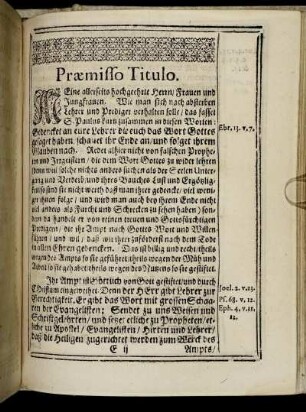 Præmisso Titulo.
MEine allerseits hochgeehrte Herrn/ Frauen und
Jungfrauen. Wie man sich nach absterben
Lehrer und Prediger verhalten solle/ das fasset
S. Paulus kurtz zusammen in diesen Worten:
Gedencket an eure Lehrer die euch das Wort Gottes
gesaget haben, schauet ihr Ende an/ und folget ihrem
Glauben nach. Redet alhier nicht von falschen Prophe-
ten und Irrgeistern/ die dem Wort Gottes zu wider lehren
(denn weil solche nichts anders suchen als der Seelen Unter-
gang und Verderb und ihres Bauches Lust und Ergöblig-
sind sie nicht werth daß man ihrer gedencke/ viel we-
niger ihnen folge/ und wird man auch bey ihrem Ende nicht
viel anders als Furcht und Schrecken zu sehen haben) son-
dern da handelt er von den treuen und Gottsfürchtigen
Predigern/ die ihr Ampt nach Gottes Wort und Willen
führen/ und wil/ daß wir ihrer zusönderst nach dem Tode
in allen Ehren gedencken. Das ist billig und recht theils
wegen des Ampts so sie geführet theils wegen der Müh und
Arbeit so sie gehabet theils wegen des Nutzens so sie gestifftet.
Ihr Ampt ist Göttlich von Gott gestifftet/ und durch
Christum eingeweihet. Denn der HErr gibt Lehrer zur
Gerechtigkeit. Er gibt das Wort mit grossen Schaa-
ren der Evangelisten; Sendet zu uns Weisen und
Schrifftgelehrten/ und setzet etliche zu Propheten/ et-
liche zu Apostel/ Evangelisten/ Hirten und Lehrer/
daß die Heiligen zugerichtet werden zum Werck des
E ij
Ampts/
Ebr. 13. v. 7.
Joel. 2. v. 23.
Ps. 68. v. 12.
Eph. 4. v. 11.
12.